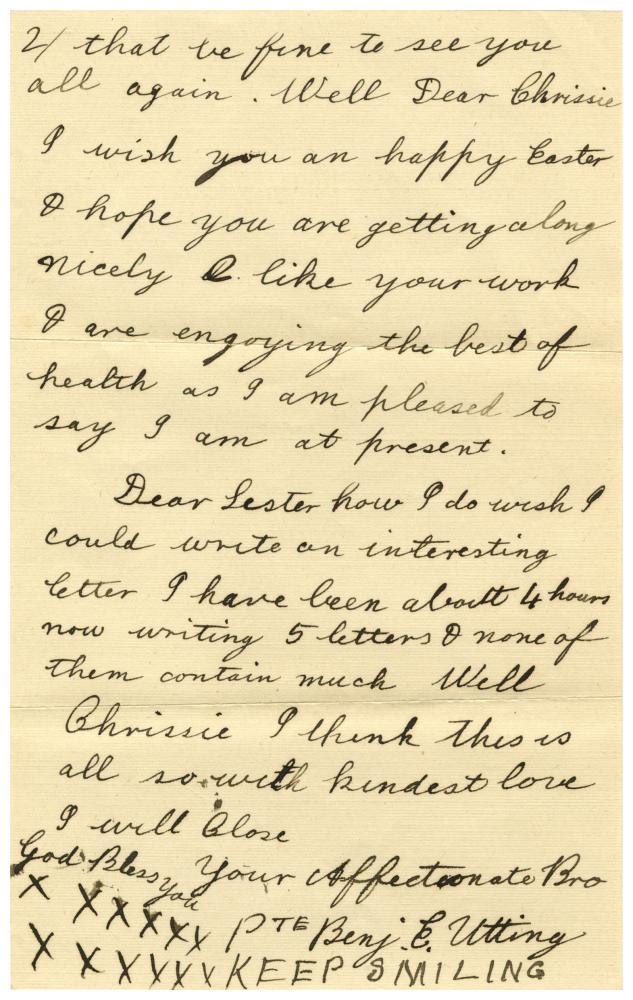 2/ that be fine to see you
all again. Well Dear Chrissie
I wish you an happy Easter
& hope you are getting along
nicely & like your work
& are engoying the best of
health as I am pleased to
say I am at present.
Dear Sester how I do wish I
could write an interesting
letter I have been about 4 hours
now writing 5 letters & none of
them contain much Well
Chrissie I think this is
all so with kindest love
I will Close
God Bless you Your Affectionate Bro
X X X X X X PTE Benj E. Utting
X X X X X X KEEP SMILING